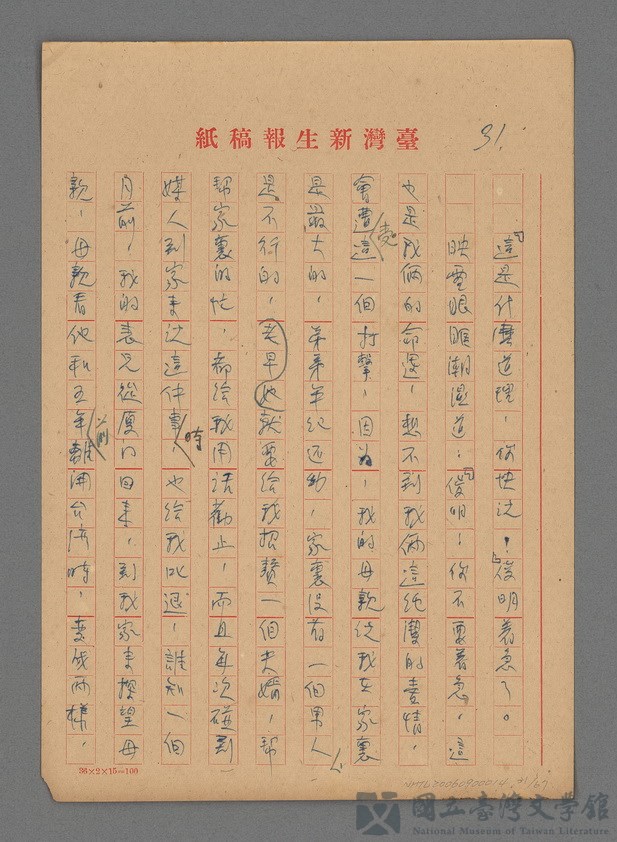 臺灣新生報稿紙
31.
「這是什麼道理,你快說!」俊明著急了。
映雪眼眶潮濕道:「俊明!你不要著急,這
也是我倆的命運,想不到我倆這純潔的愛情,
會遭這一個打擊,因為,我的母親說我在家裏
是最大的,弟弟年紀還幼,家裏沒有一個男人
是不行的,老早她就要給我招贅一個夫婿,幫
幫家裏的忙,都給我用話勸止,而且每次碰到
媒人到家來說這件事時,也給我叱退,誰知一個
月前,我的表兄從廈門回來,到我家來探望母
親,母親看他和五年前離開台灣時,變成兩樣,
36×2×15=100
國立臺灣文學館
National Museum of Taiwan Literature